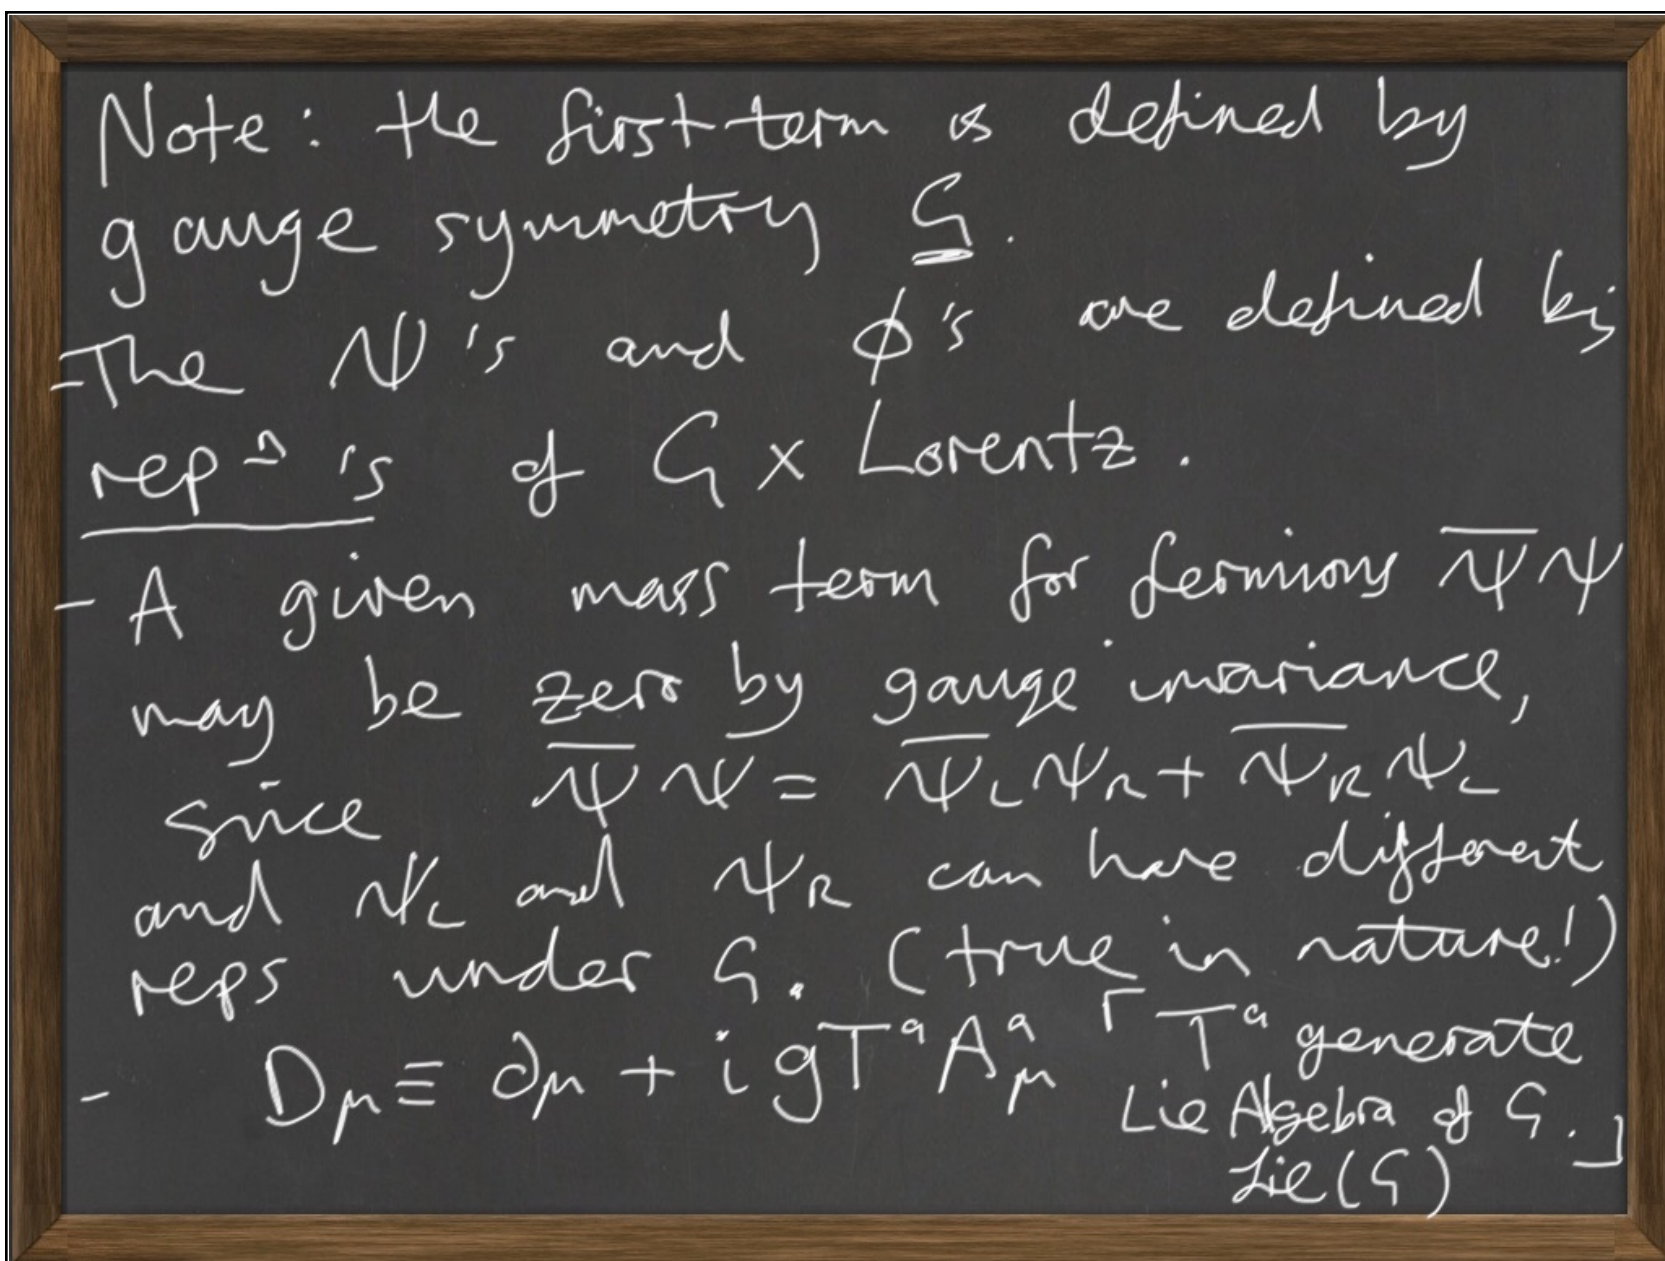 Note: the first term is defined by
gauge symmetry G.
- The ψ's and ϕ's are defined by
repⁿ's of G × Lorentz.
- A given mass term for fermions ψ̅ψ
may be zero by gauge invariance,
since ψ̅ψ = ψ̅_L ψ_R + ψ̅_R ψ_L
and ψ_L and ψ_R can have different
reps under G. (true in nature!)
- D_μ ≡ ∂_μ + i g T^a A^a_μ [T^a generate
Lie Algebra of G.]
Lie(G)